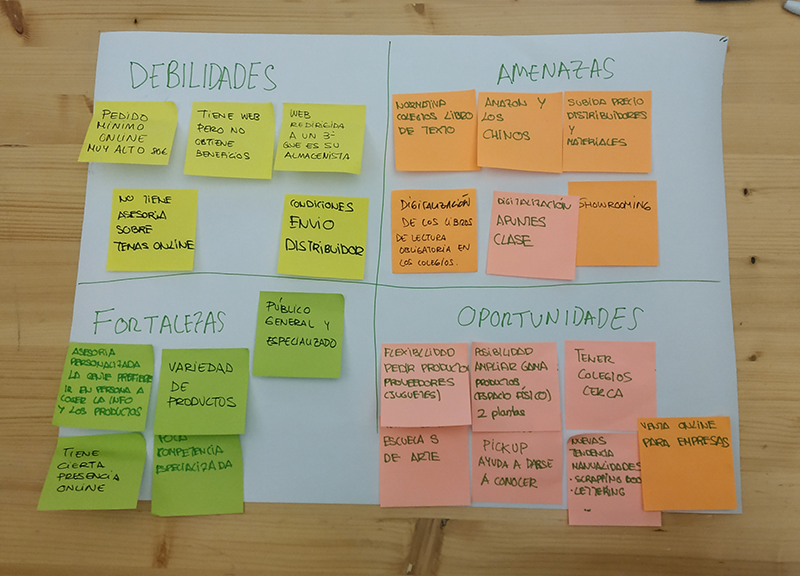 DEBILIDADES
PEDIDO
MÍNIMO
ONLINE
MUY ALTO 50€
TIENE WEB
PERO NO
OBTIENE
BENEFICIOS
WEB
REDIRIGIDA
A UN 3º
QUE ES SU
ALMACENISTA
NO TIENE
ASESORIA
SOBRE
TEMAS ONLINE
CONDICIONES
ENVIO
DISTRIBUIDOR
AMENAZAS
NORMATIVA
COLEGIOS LIBRO
DE TEXTO
AMAZON Y
LOS
CHINOS
SUBIDA PRECIO
DISTRIBUIDORES
Y
MATERIALES
DIGITALIZACIÓN
DE LOS LIBROS
DE LECTURA
OBLIGATORIA EN
LOS COLEGIOS.
DIGITALIZACIÓN
APUNTES
CLASE
SHOWROOMING
FORTALEZAS
PÚBLICO
GENERAL Y
ESPECIALIZADO
ASESORIA
PERSONALIZADA
LA GENTE PREFIERE
IR EN PERSONA A
COGER LA INFO
Y LOS PRODUCTOS
VARIEDAD
DE
PRODUCTOS
TIENE
CIERTA
PRESENCIA
ONLINE
POCA
COMPETENCIA
ESPECIALIZADA
OPORTUNIDADES
FLEXIBILIDAD
PEDIR PRODUCTO
PROVEEDORES
(JUGUETES)
POSIBILIDAD
AMPLIAR GAMA
PRODUCTOS
(ESPACIO FÍSICO)
2 plantas
TENER
COLEGIOS
CERCA
ESCUELAS
DE ARTE
PICKUP
AYUDA A DARSE
A CONOCER
NUEVAS
TENDENCIA
MANUALIDADES
- SCRAPPING BOO
- LETTERING
VENTA ONLINE
PARA EMPRESAS